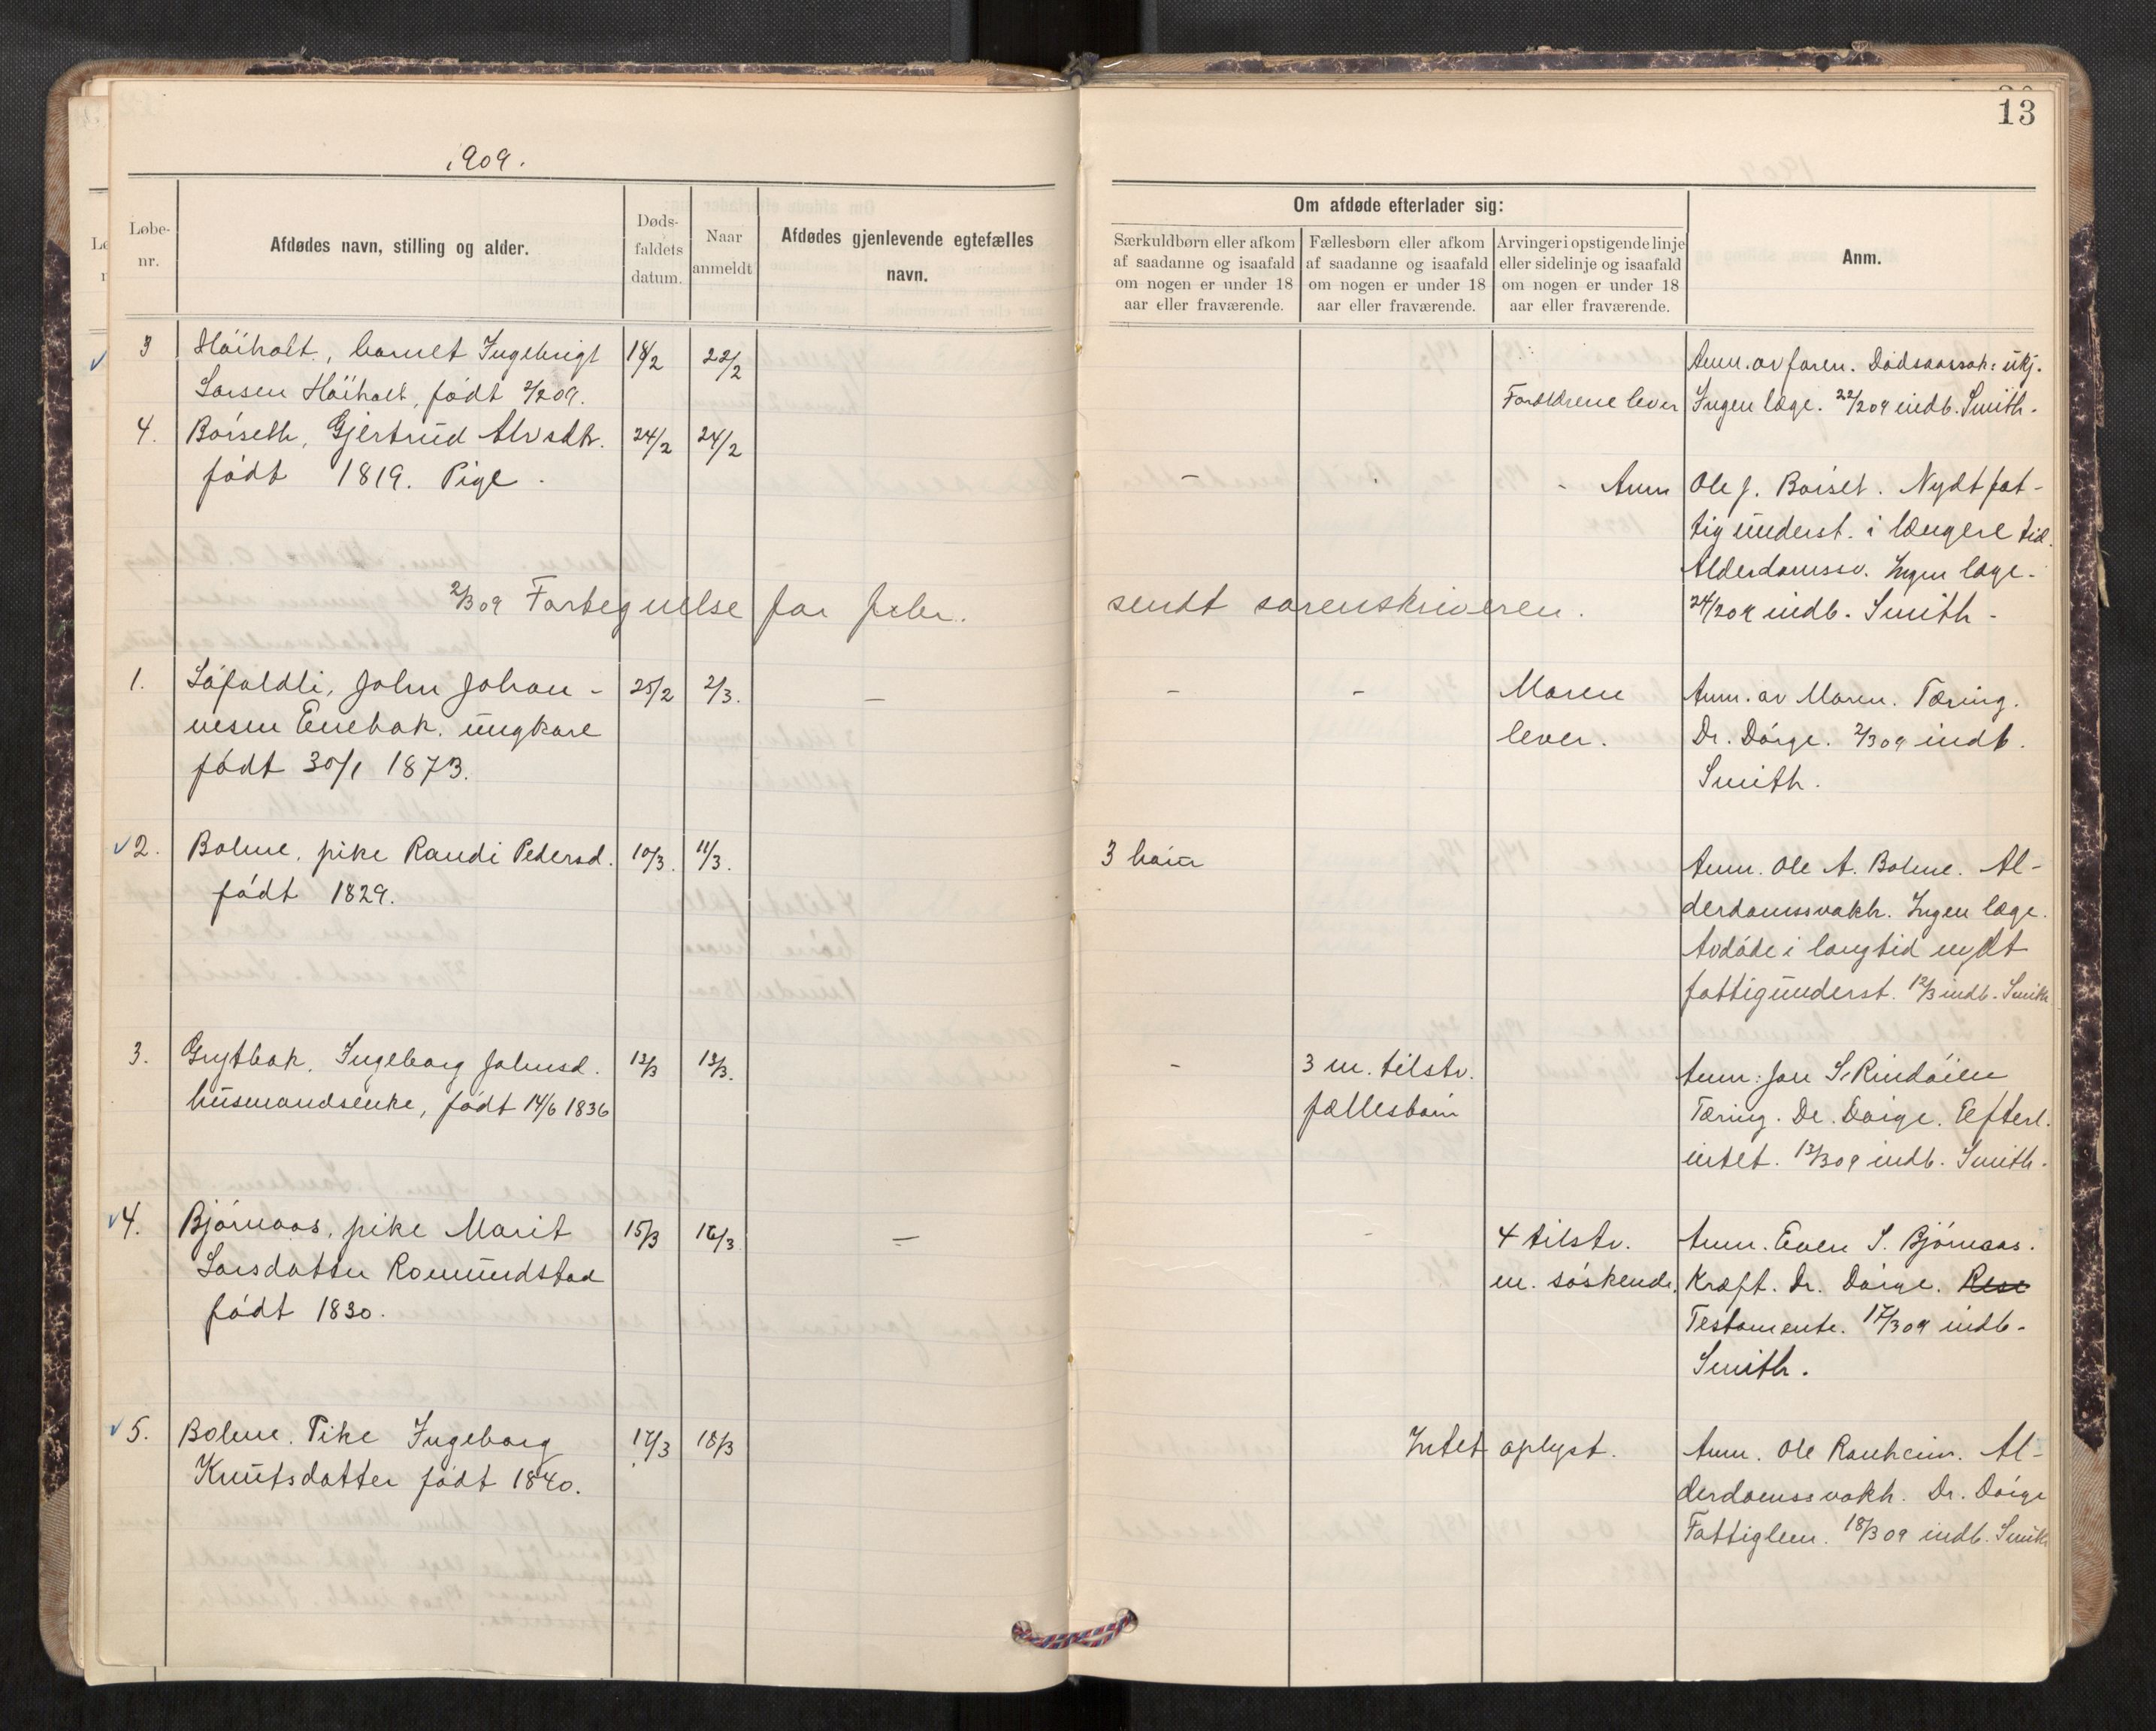 13
1909.
Løbe-
nr.
Afdødes navn, stilling og alder.
Døds-
faldets
datum.
Naar
anmeldt
Afdødes gjenlevende egtefælles
navn.
Om afdøde efterlader sig:
Særkuldbørn eller afkom
af saadanne og isaafald
om nogen er under 18
aar eller fraværende.
Fællesbørn eller afkom
af saadanne og isaafald
om nogen er under 18
aar eller fraværende.
Arvinger i opstigende linje
eller sidelinje og isaafald
om nogen er under 18
aar eller fraværende.
Anm.
3 Høiholt, barnet Ingebrigt 18/2 22/2
Larsen Høiholt, født 2/2 09.
Forældrene lever
Anm. av faren. Dødsaarsak: ukj.
Ingen læge. 22/2 09 indb. Smith.
4. Børseth, Gjertrud Alvsdtr. 24/2 24/2
født 1819. Pige.
- - Anm Ole J. Børset. Nydt fat-
tigunderst. i længere tid.
Alderdomssv. Ingen læge.
24/2 09 indb. Smith -
2/3 09 Fortegnelse for febr. sendt sorenskriveren.
1. Løfaldli, John Johan- 25/2 2/3. -
nesen Enebak. ungkare
født 30/1 1873.
- - Maren
lever.
Anm. av Maren. Tæring.
Dr. Dørge. 2/3 09 indb.
Smith.
2. Bolme, pike Randi Pedersd. 10/3. 11/3.
født 1829.
3 børn
Anm. Ole A. Bolme. Al-
derdomssvakh. Ingen læge.
Avdøde i lang tid nydt
fattigunderst. 12/3 indb. Smith
3. Grytbak, Ingeborg Johnsd. 12/3 13/3.
husmandsenke, født 14/6 1836
- 3 m. tilstv.
fællesbørn
Anm: Jon S. Rindøien
Tæring. Dr. Dørge. Efterl.
intet. 13/3 09 indb. Smith.
4. Bjørnaas, pike Marit 15/3 16/3 -
Larsdatter Romundstad
født 1830.
- 4 tilstv.
m. søskende.
Anm. Even S. Bjørnaas.
Kræft. Dr. Dørge.
Testamente. 17/3 09 indb.
Smith.
5. Bolme. Pike Ingeborg 17/3 18/3
Knutsdatter født 1840.
Intet oplyst.
Anm. Ole Ranheim. Al-
derdomssvakh. Dr. Dørge
Fattiglem. 18/3 09 indb. Smith